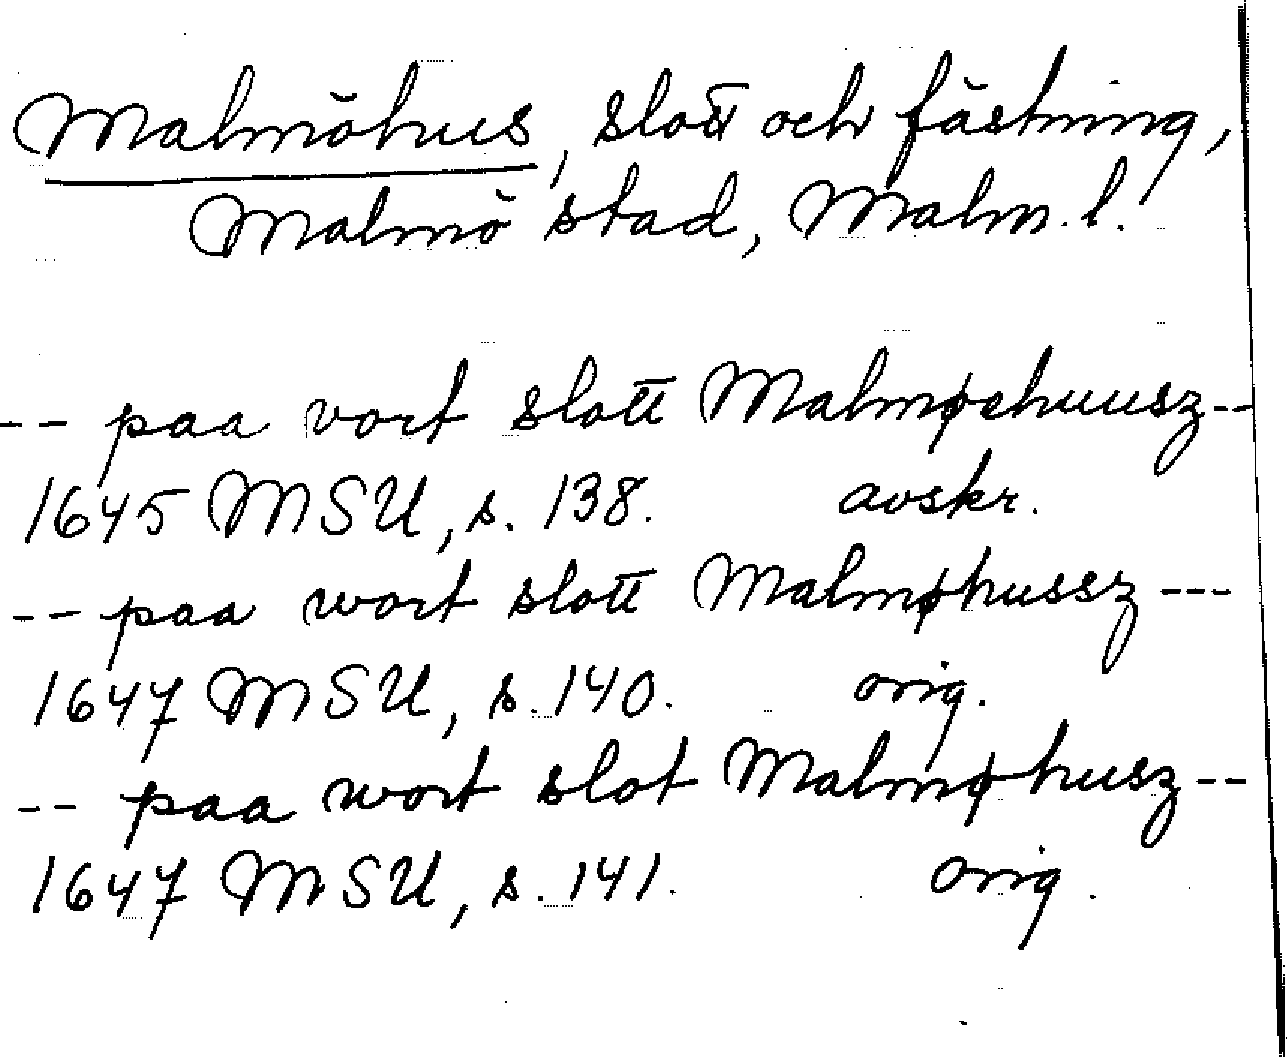 Malmöhus, slott och fästning,
Malmö stad, Malm. l.
-- paa vort slott Malmøehuusz--
1645 MSU, s. 138. avskr.
-- paa wort slott Malmøhussz ---
1647 MSU, s. 140. orig.
-- paa wort slot Malmøhusz--
1647 MSU, s. 141. orig.